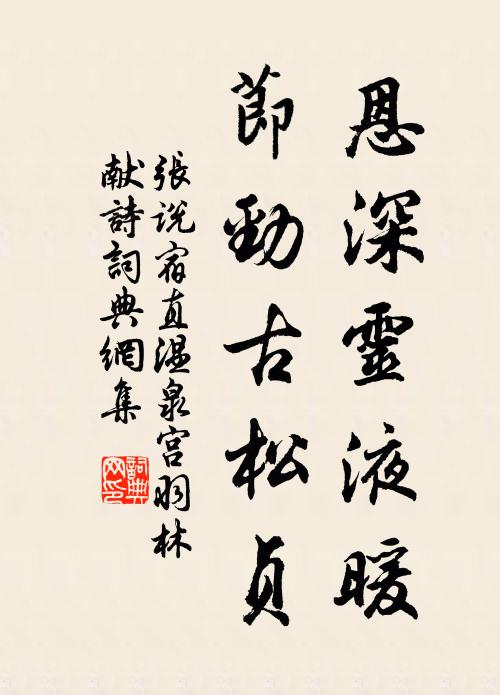 恩深靈液暖
節勁古松貞
張说宿直温泉宫羽林
献詩詞典網集
詞典网印